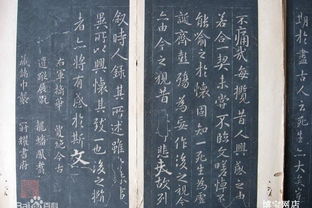 期於盡古人云死生亦大矣
不痛哉每攬昔人興感之由
若合一契未嘗不臨文嗟悼不
能喻之於懷固知一死生為虛
誕齊彭殤為妄作後之視今
亦由今之視昔悲夫故列
敘時人錄其所述雖世殊事
異所以興懷其致一也後之攬
者亦將有感於斯文
右軍
龍蟠鳳翥
書府
Bai 百科
博宝网店